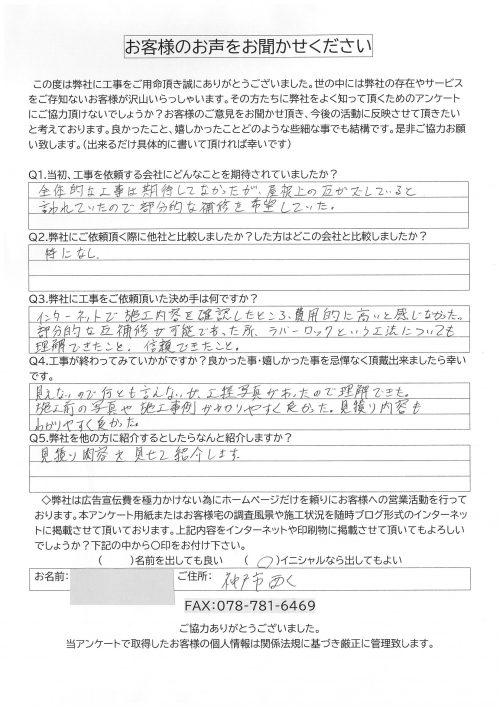 お客様のお声をお聞かせください
この度は弊社に工事をご用命頂き誠にありがとうございました。世の中には弊社の存在やサービス
をご存知ないお客様が沢山いらっしゃいます。その方たちに弊社をよく知って頂くためのアンケート
にご協力頂けないでしょうか?お客様のご意見をお聞かせ頂き、今後の活動に反映させて頂きたい
と考えております。良かったこと、嬉しかったことどのような些細な事でも結構です。是非ご協力お願
い致します。（出来るだけ具体的に書いて頂ければ幸いです）
Q1.当初、工事を依頼する会社にどんなことを期待されていましたか?
全体的な工事は期待してなかったが、屋根上の瓦がズレていると
言われていたので部分的な補修を希望していた。
Q2.弊社にご依頼頂く際に他社と比較しましたか?した方はどこの会社と比較しましたか?
特になし
Q3.弊社に工事をご依頼頂いた決め手は何ですか?
インターネットで施工内容を確認したところ、費用的に高いと感じなかった。
部分的な瓦補修が可能であった所、ラバーロックという工法についても
理解できたこと、信頼できたこと。
Q4.工事が終わってみていかがですか?良かった事・嬉しかった事を忌憚なく頂戴出来ましたら幸い
です。
見えないので何とも言えないが、工程写真があったので理解できた。
施工前の写真や施工事例がわかりやすく良かった。見積り内容も
わかりやすく良かった。
Q5.弊社を他の方に紹介するとしたらなんと紹介しますか?
見積り内容を見せて紹介します
◇弊社は広告宣伝費を極力かけない為にホームページだけを頼りにお客様への営業活動を行って
おります。本アンケート用紙またはお客様宅の調査風景や施工状況を随時ブログ形式のインターネッ
トに掲載させて頂いております。上記内容をインターネットや印刷物に掲載させて頂いてもよろしい
でしょうか?下記の中から〇印をお付け下さい。
（　　）名前を出しても良い　（ 〇 ）イニシャルなら出してもよい
お名前:　ご住所: 神戸市西く
FAX:078-781-6469
ご協力ありがとうございました。
当アンケートで取得したお客様の個人情報は関係法規に基づき厳正に管理致します。